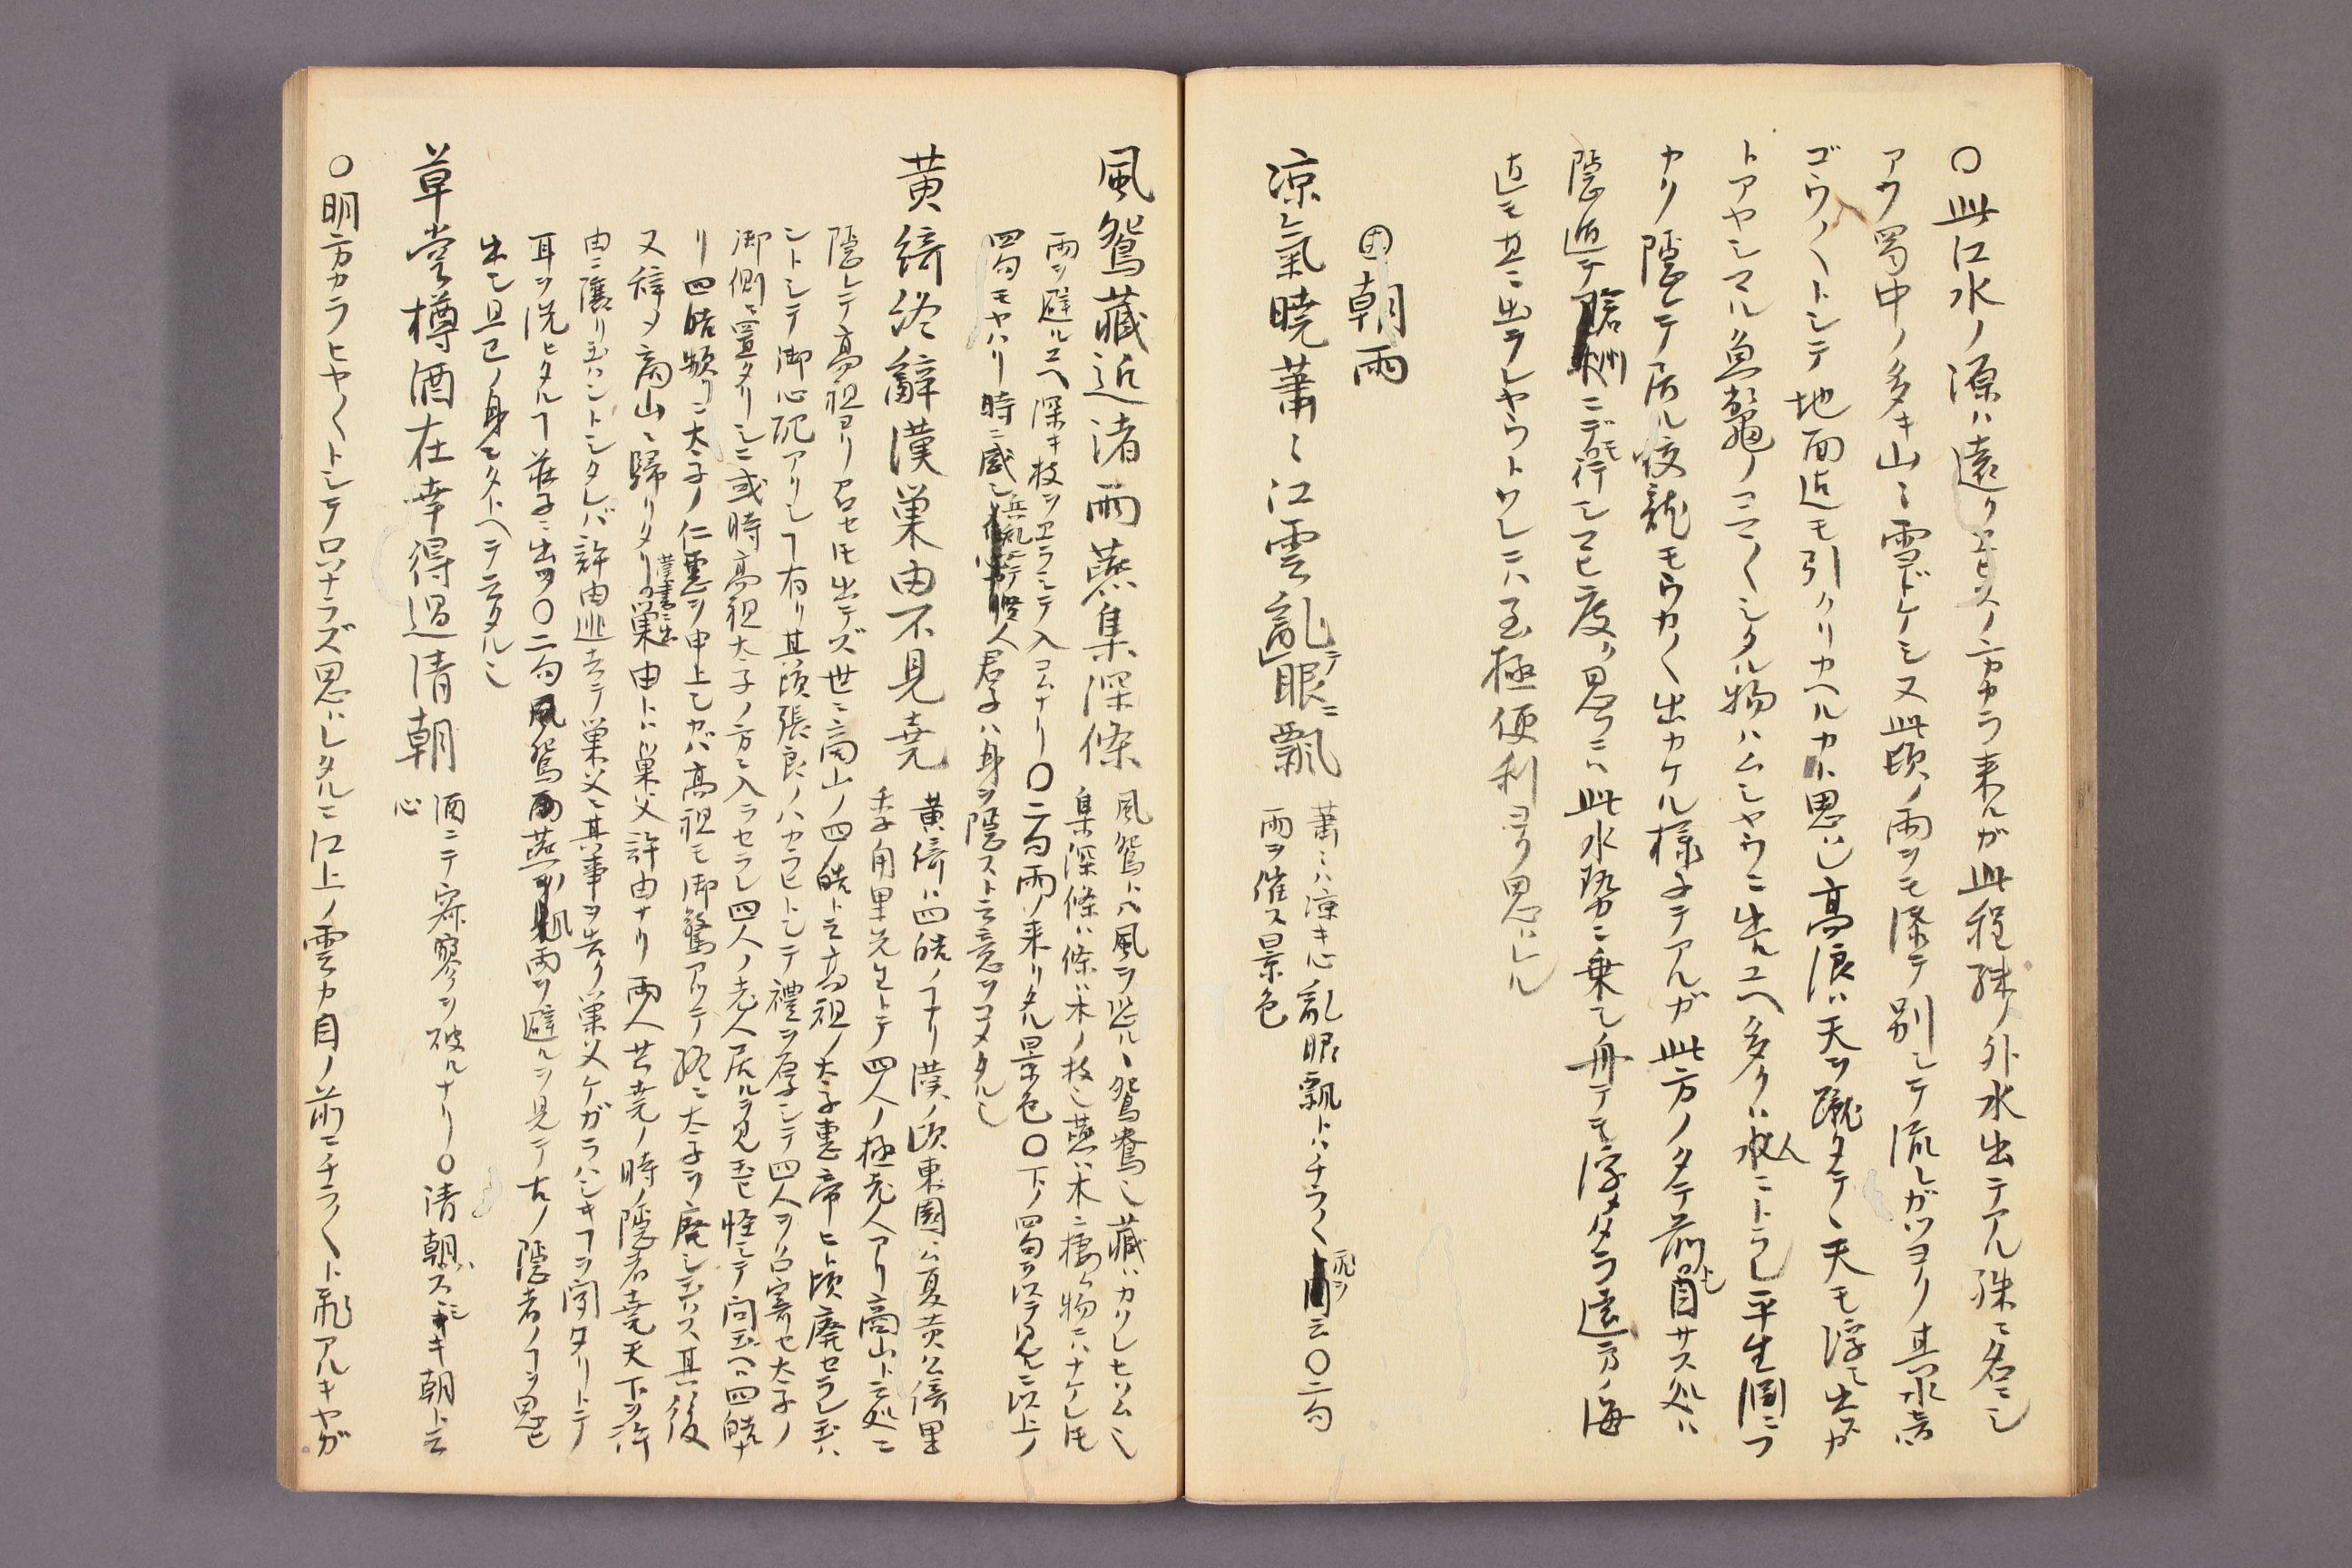 〇此江水ノ源ハ遠クエビスノ方カラ来ルガ此程殊ノ外水出テアル殊ニ名ニシ
アウ蜀中ノ多キ山ニ雪ドケシ又此頃ノ雨ヲモ添テ別シテ流レガツヨリ其水音ハ
ゴウ〱トシテ地面迄モ引クリカヘルカト思ハレ高浪ハ天ヲ蹴タテ天モ浮ミ出ガ
トアヤシマル魚鼈ノコマ〱シタル物ハムシヤウニ出ルユヘ多クハ人ニトラレ平生淵ニフ
カリ隠レテ居ル蛟龍モウカ〱出カケル様子テアルガ此方ノタテ前トモ目サス処ハ
隠遁テ
ニデモ行シマヒ度ク思フニハ此水勢ニ乗シ舟テモ浮メタラ遠方ノ海
迄モ共ニ出ラレヤウトワレニハ至極便利ヨク思ハレル
朝雨
凉氣曉蕭ミ江雲亂テ眼ニ飄
蕭ミハ凉キ心乱眼飄トハチラ〱
云〇二句
雨ヲ催ス景色
風鴛藏近渚雨燕集深條
風鴛トハ風ヲ恐ルヽ鴛鴦也藏ハカクレヒソム也
集深條ハ條ハ木ノ枝也燕ハ木ニ棲ム物ニハナケレ𪜈
雨ヲ避ルユヘ深キ枝ヲエラミテ入コムナリ〇二句雨ノ来リタル景色〇下ノ四句ヲ以テ見ルニ以上ノ
四句モヤハリ時ニ感シ兵乱ニテ
人君子ハ身ヲ隠スト云意ヲコメタル也
黄綺終辭漢巢由不見堯
黄綺ハ四皓ノヿナリ漢ノ頃東園公夏黄公綺里
季角里先生トテ四人ノ極老人アリ商山ト云処ニ
隠レテ高祖ヨリ召セ𪜈出テズ世ニ商山ノ四皓ト云高祖ノ太子惠帝ヒト頃廃セラレ玉ハ
ントシテ御心配アリシヿ有リ其頃張良ノハカラヒトシテ禮ヲ厚シテ四人ヲ召寄セ太子ノ
御側ニ置タリシニ或時高祖太子ノ方ニ入ラセラレ四人ノ老人居ルヲ見玉ヒ怪シテ問玉ヘハ四皓ナ
リ四皓頻リニ太子ノ仁惠ヲ申上シカバ高祖モ御驚アツテ終ニ太子ヲ廃シ玉ハス其後
又辞メ商山ニ歸リタリ漢書ニ出巢由トハ巢父許由ナリ両人共堯ノ時ノ隠者堯天下ヲ許
由ニ讓リ玉ハントシタレバ許由逃去テ巢父ニ其事ヲ告ク巢父ケガラハシキヿヲ聞タリトテ
耳ヲ洗ヒタルヿ莊子ニ出ツ〇二句風鴛雨燕ノ
雨ヲ避ルヲ見テ古ノ隠者ノヿヲ思ヒ
出シ且已ノ身モタトヘテ云タル也
草堂樽酒在幸得過清朝
酒ニテ寂寥ヲ破ルナリ〇清朝ハ
キ朝ト云
心
〇明方カラヒヤ〱トシテ只ナラズ思ハレタルニ江上ノ雲カ目ノ前ニチラ〱ト飛アルキヤガ